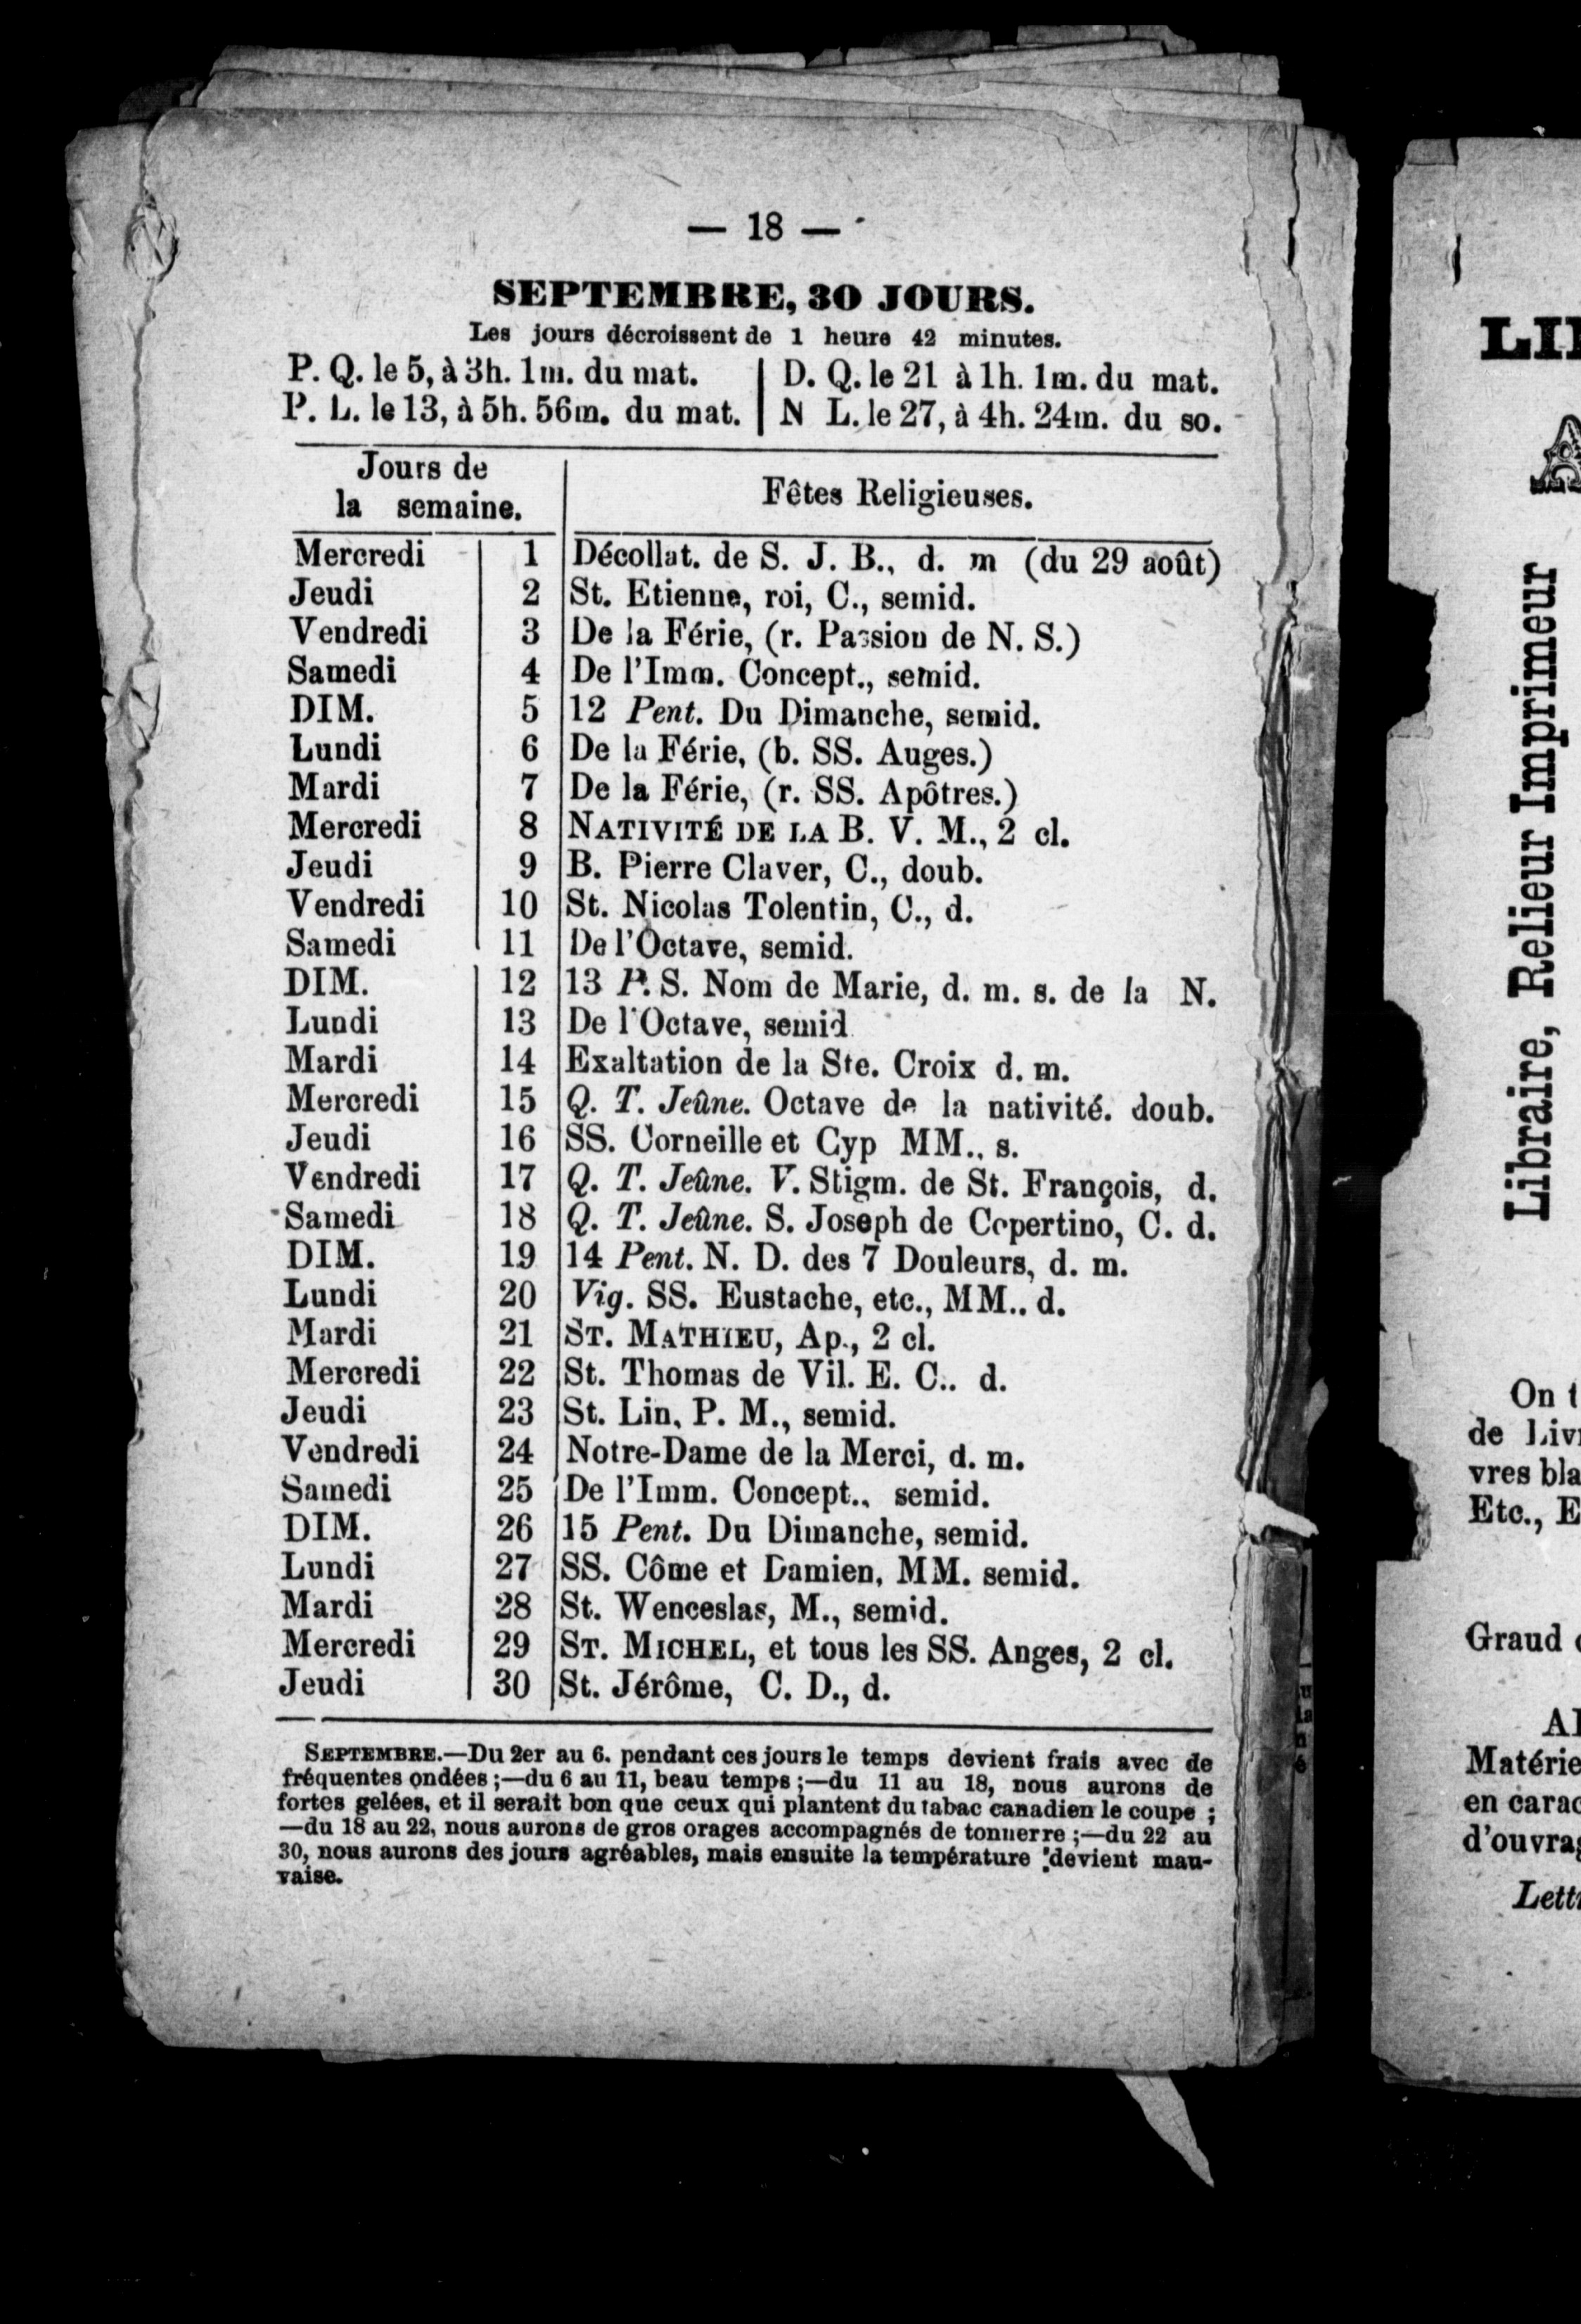 — 18 —
SEPTEMBRE, 30 JOURS.
Les jours décroissent de 1 heure 42 minutes.
P. Q. le 5, à 3h. 1m. du mat. | D. Q. le 21 à 1h. 1m. du mat.
P. L. le 13, à 5h. 56m. du mat. | N L. le 27, à 4h. 24m. du so.
Jours de
la semaine.
Fêtes Religieuses.
Mercredi 1 Décollat. de S. J. B., d. m (du 29 août)
Jeudi 2 St. Etienne, roi, C., semid.
Vendredi 3 De la Férie, (r. Passion de N. S.)
Samedi 4 De l'Imm. Concept., semid.
DIM. 5 12 Pent. Du Dimanche, semid.
Lundi 6 De la Férie, (b. SS. Auges.)
Mardi 7 De la Férie, (r. SS. Apôtres.)
Mercredi 8 NATIVITÉ DE LA B. V. M., 2 cl.
Jeudi 9 B. Pierre Claver, C., doub.
Vendredi 10 St. Nicolas Tolentin, C., d.
Samedi 11 De l'Octave, semid.
DIM. 12 13 P. S. Nom de Marie, d. m. s. de la N.
Lundi 13 De l'Octave, semid
Mardi 14 Exaltation de la Ste. Croix d. m.
Mercredi 15 Q. T. Jeûne. Octave de la nativité. doub.
Jeudi 16 SS. Corneille et Cyp MM., s.
Vendredi 17 Q. T. Jeûne. V. Stigm. de St. François, d.
Samedi 18 Q. T. Jeûne. S. Joseph de Copertino, C. d.
DIM. 19 14 Pent. N. D. des 7 Douleurs, d. m.
Lundi 20 Vig. SS. Eustache, etc., MM.. d.
Mardi 21 ST. MATHIEU, Ap., 2 cl.
Mercredi 22 St. Thomas de Vil. E. C.. d.
Jeudi 23 St. Lin, P. M., semid.
Vendredi 24 Notre-Dame de la Merci, d. m.
Samedi 25 De l'Imm. Concept., semid.
DIM. 26 15 Pent. Du Dimanche, semid.
Lundi 27 SS. Côme et Damien, MM. semid.
Mardi 28 St. Wenceslas, M., semid.
Mercredi 29 ST. MICHEL, et tous les SS. Anges, 2 cl.
Jeudi 30 St. Jérôme, C. D., d.
SEPTEMBRE.—Du 2er au 6. pendant ces jours le temps devient frais avec de
fréquentes ondées ;—du 6 au 11, beau temps ;—du 11 au 18, nous aurons de
fortes gelées, et il serait bon que ceux qui plantent du tabac canadien le coupe ;
—du 18 au 22, nous aurons de gros orages accompagnés de tonnerre ;—du 22 au
30, nous aurons des jours agréables, mais ensuite la température devient mau-
vaise.
Libraire, Relieur Imprimeur
On
de
vres
Etc.,
Graud
en